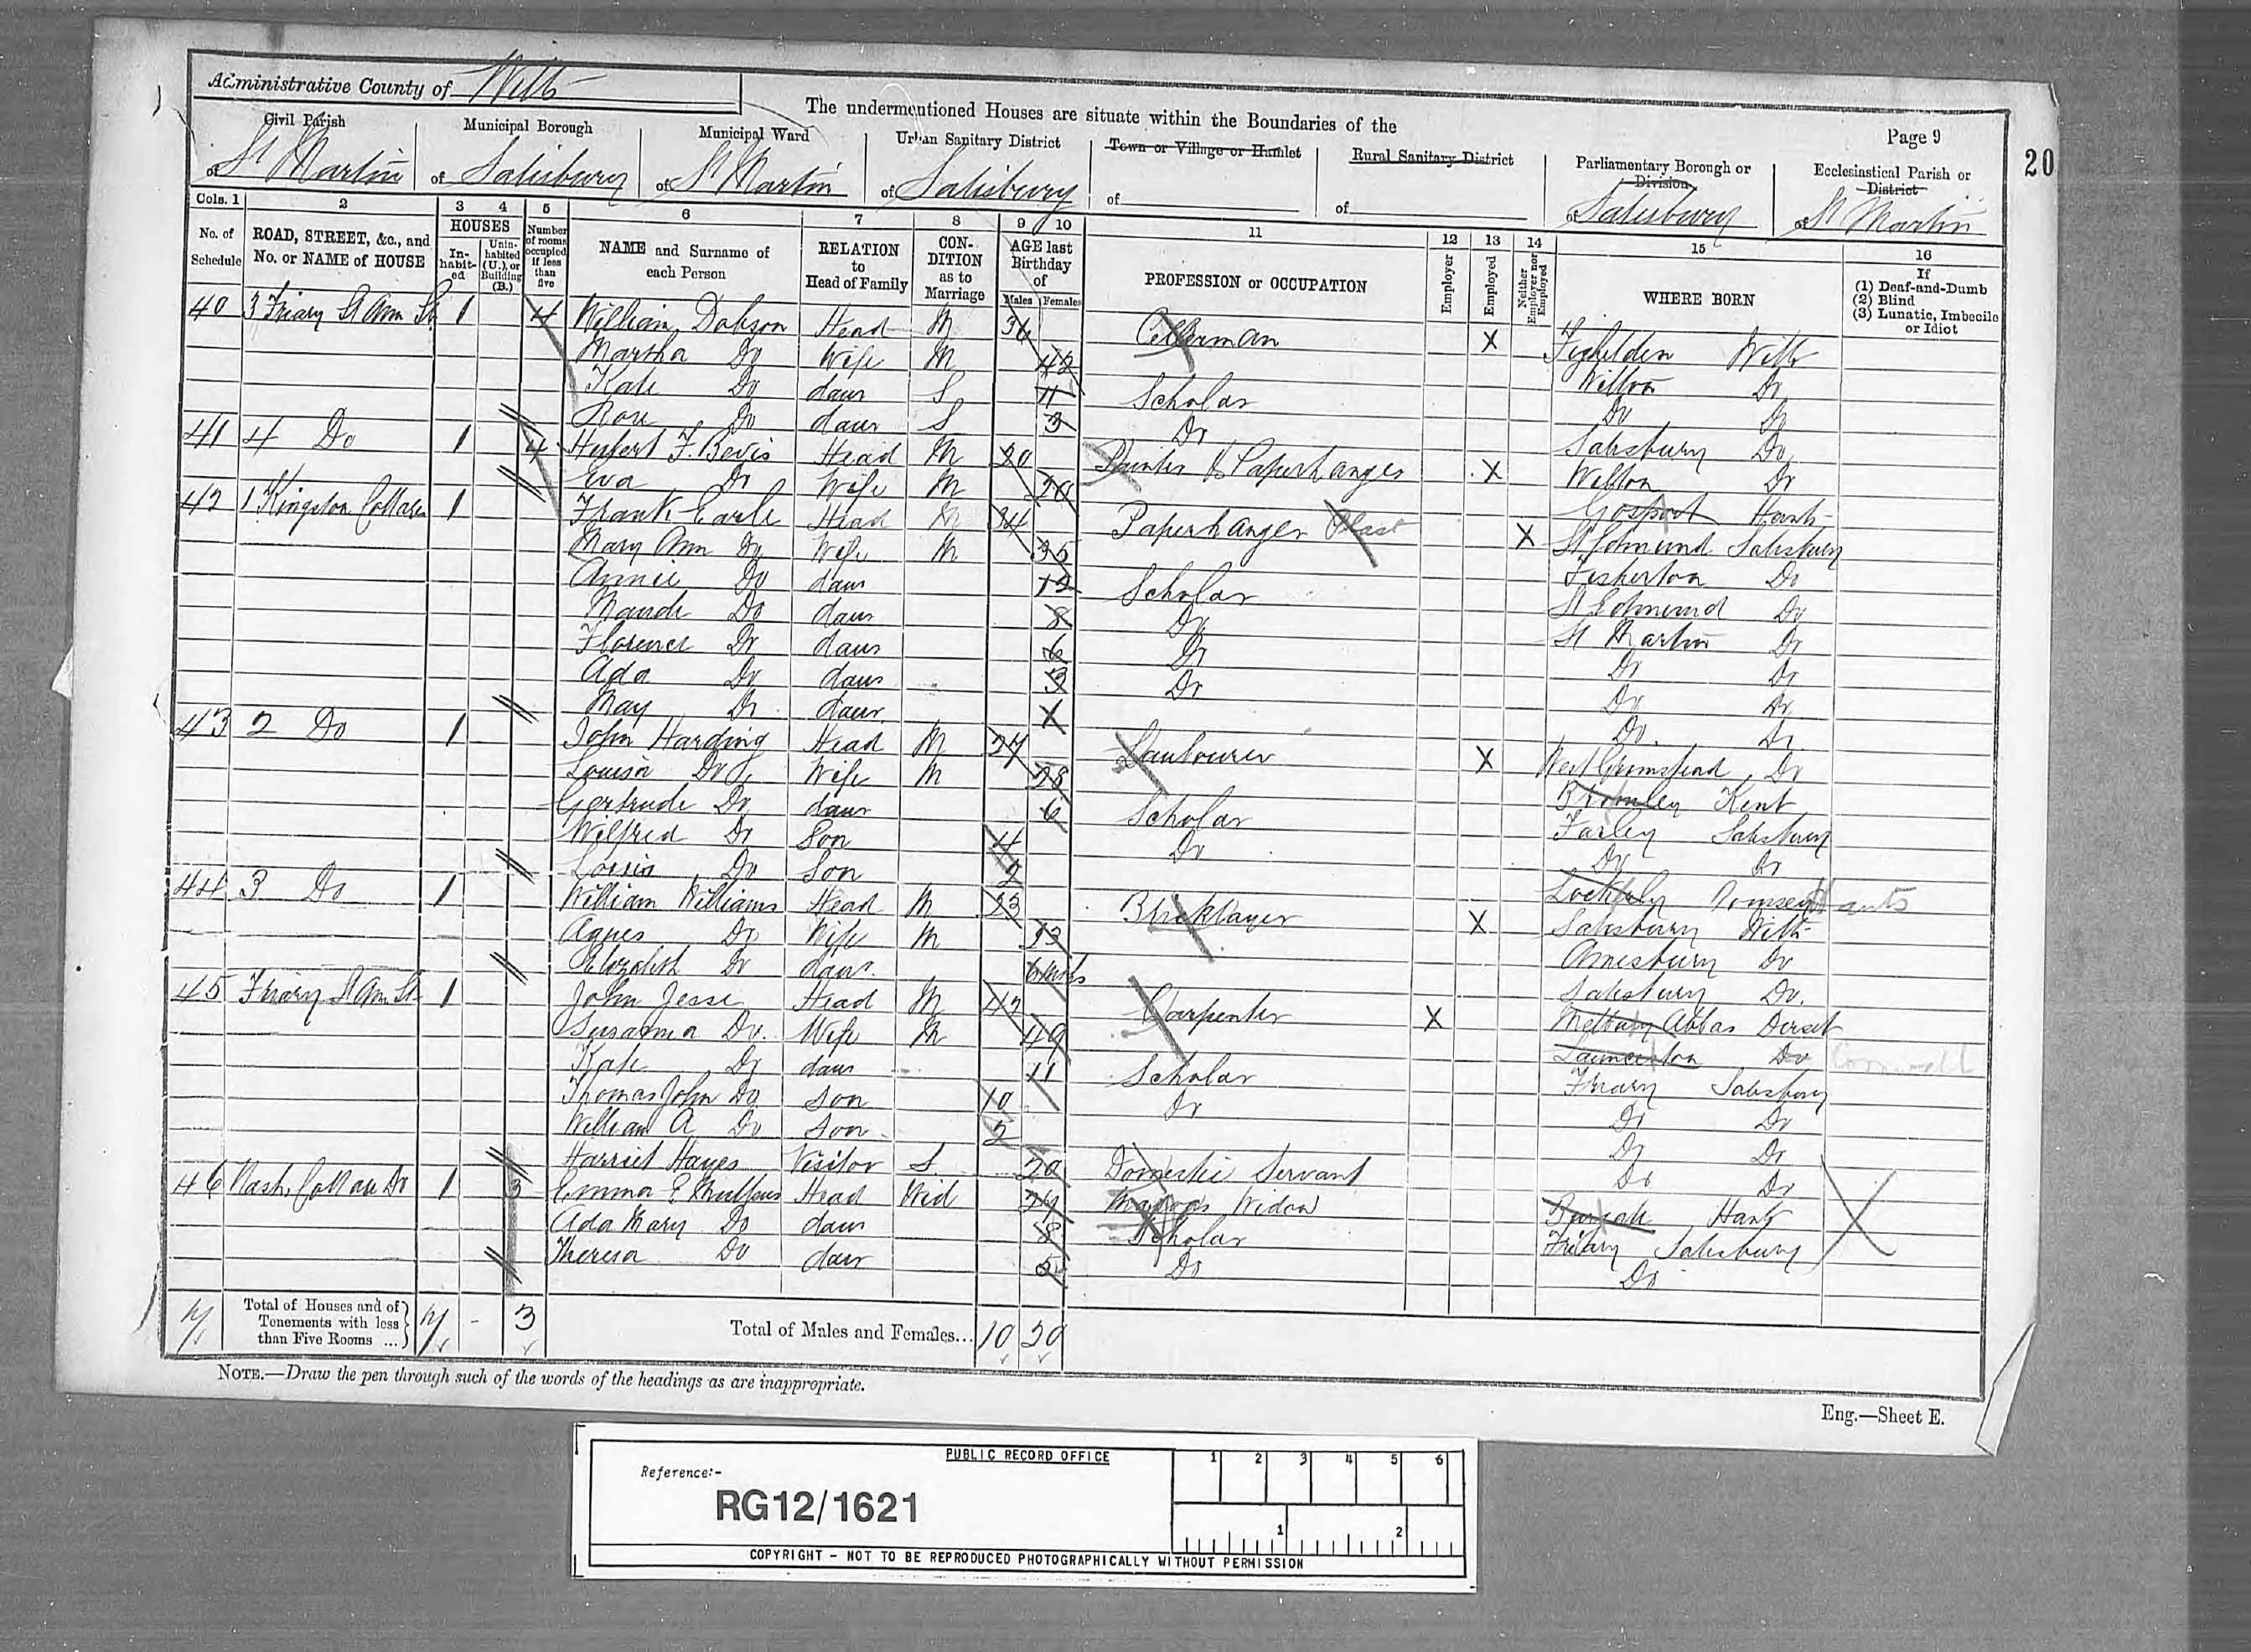 Administrative County of Wilts
The undermentioned Houses are situate within the Boundaries of the
Page 9
20
Civil Parish
Municipal Borough
Municipal Ward
Urban Sanitary District
Town or Village or Hamlet
Rural Sanitary District
Parliamentary Borough or Division
Ecclesiastical Parish or District
of St Martin of Salisbury of St Martin of Salisbury of of of Salisbury of St Martin
Cols. 1 2 3 4 5 6 7 8 9 10 11 12 13 14 15 16
No. of Schedule
ROAD, STREET, &c., and No. or NAME of HOUSE
HOUSES
In-habit-ed
Unin-habited (U.), or Building (B.)
Number of rooms occupied if less than five
NAME and Surname of each Person
RELATION to Head of Family
CON-DITION as to Marriage
AGE last Birthday of
Males Females
PROFESSION or OCCUPATION
Employer
Employed
Neither Employer nor Employed
WHERE BORN
If
(1) Deaf-and-Dumb
(2) Blind
(3) Lunatic, Imbecile or Idiot
40 3 Friary St Ann St 1 4 William Dobson Head M 36 Cellarman X Figheldean Wilts
Martha Do Wife M 42 Wilton Do
Kate Do daur S 11 Scholar Do Do
Rose Do daur S 3 Do Salisbury Do
41 4 Do 1 4 Hubert F. Bevis Head M 20 Painter & Paperhanger X Wilton Do
Eva Do Wife M 20 Gosport Hants
42 1 Kingston Cottages 1 Frank Earle Head M 34 Paperhanger X St Edmund Salisbury
Mary Ann Do Wife M 35 Fisherton Do
Annie Do daur 12 Scholar St Edmund Do
Maude Do daur 8 Do St Martin Do
Florence Do daur 6 Do Do Do
Ada Do daur 3 Do Do Do
May Do daur Do Do
43 2 Do 1 John Harding Head M 27 Labourer X West Grimstead Do
Louisa Do Wife M 28 Bromley Kent
Gertrude Do daur 6 Scholar Farley Salisbury
Wilfred Do Son 4 Do Do Do
Do Son 2 Lockerly Romsey Hants
44 3 Do 1 William Williams Head M 23 Bricklayer X Salisbury Wilts
Agnes Do Wife M 23 Amesbury Do
Elizabeth Do daur 6 Mnths Salisbury Do.
45 Friary St Ann St 1 John Jesse Head M 42 Carpenter X Melbury Abbas Dorset
Susanna Do. Wife M 49 Launceston Do Cornwall
Kate Do daur 11 Scholar Friary Salisbury
Thomas John Do Son 10 Do Do Do
William A Do Son 2 Do Do
Harriet Hayes Visitor S 20 Domestic Servant Do Do
46 Nash Cottage Do 1 3 Emma E Head Wid Widow Hants
Ada Mary Do daur 8 Scholar Friary Salisbury
Theresa Do daur 5 Do Do
7 Total of Houses and of Tenements with less than Five Rooms ... 7 - 3 Total of Males and Females... 10 20
NOTE.—Draw the pen through such of the words of the headings as are inappropriate.
Eng.—Sheet E.
PUBLIC RECORD OFFICE
1 2 3 4 5 6
Reference:-
RG12/1621
1 2
COPYRIGHT - NOT TO BE REPRODUCED PHOTOGRAPHICALLY WITHOUT PERMISSION